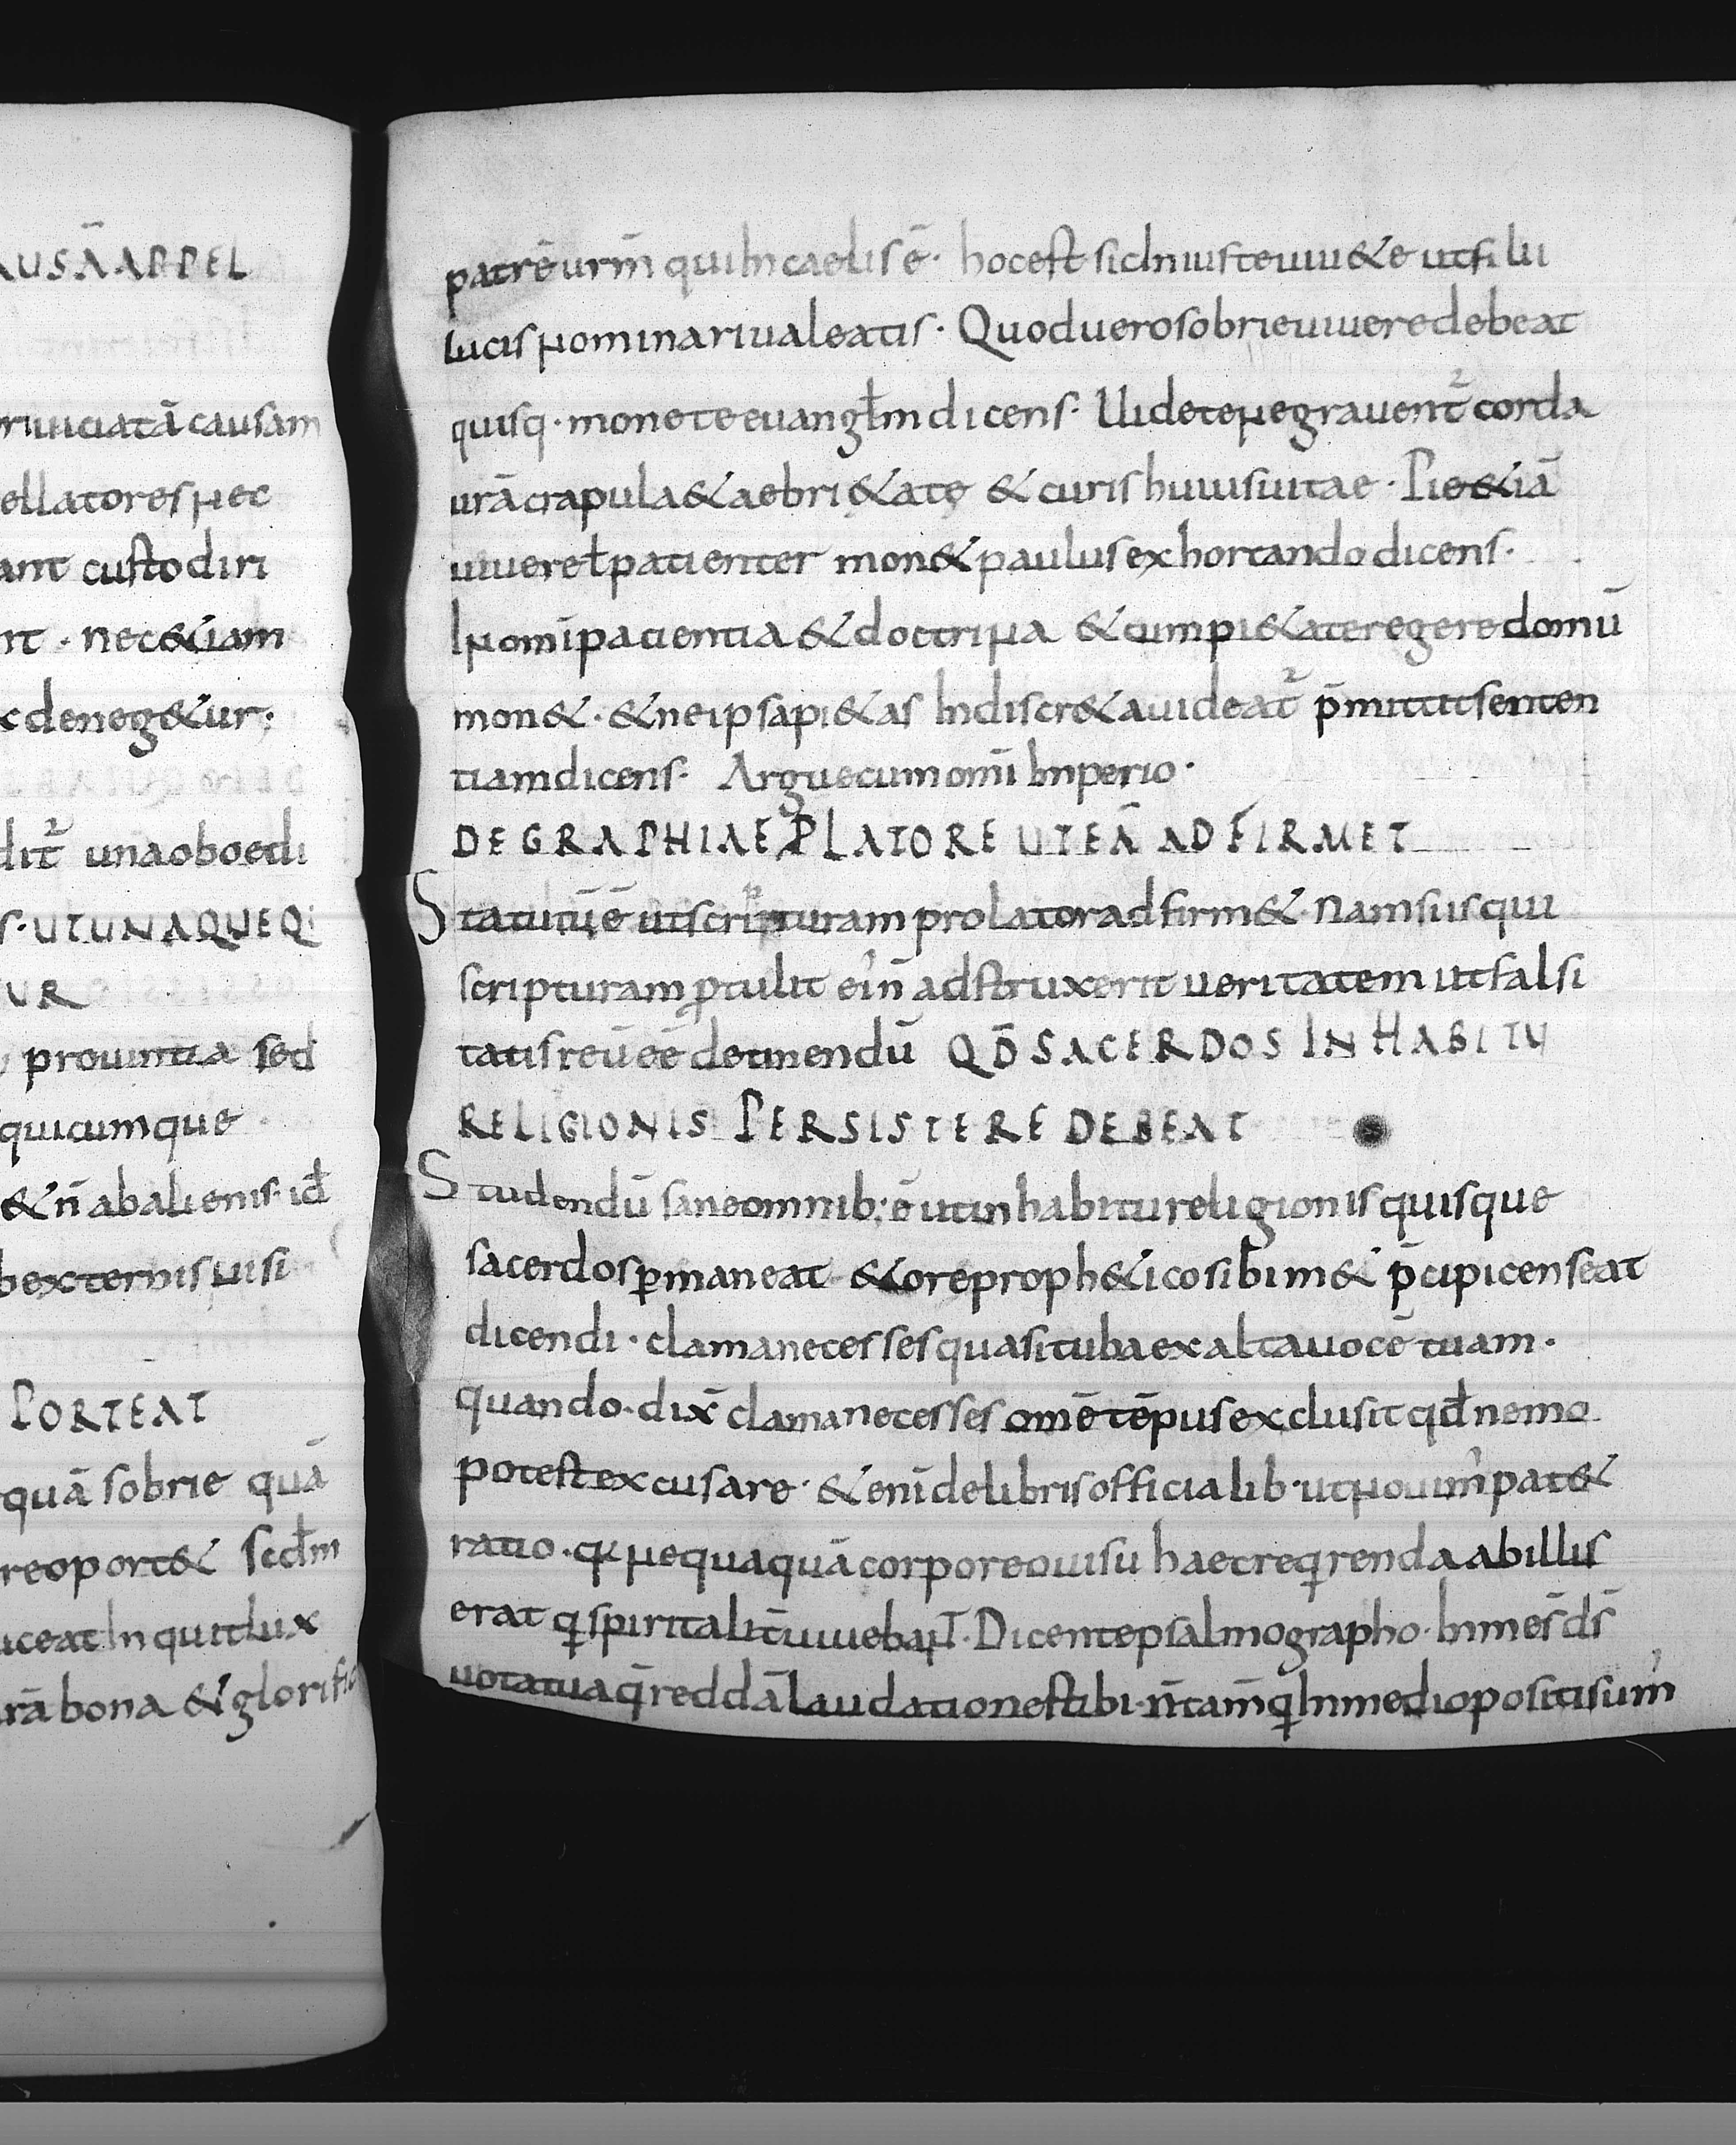 AUSĀ APPEL
riuiciatā causam
ellatores nec
ant custodiri
nt · nec &iam
deneg&ur;
dit̄ una oboedi
S· UT UNAQUEQ:
UR
prouintia sed
quicumque
& n̄ ab alienis· id̄
b externis nisi
PORTEAT
quā sobrie quā
re oport& scd̄m
uceat Inquit lux
rā bona & glorific
patrē urm̄ qui In caelis ē· hoc est sic In iuste uiu&e ut filii
lucis nominari ualeatis· Quod uero sobrie uiuere debeat
quisq· monete euangłm dicens· Uidete ne grauent̄ corda
urā crapula & aebri&ate & curis huius uitae· Pie &iā
uiuere ł patienter mon& paulus exhortando dicens·
In omī pacientia & doctrina & cum pi&ate regere domū
mon&· & ne ipsa pi&as Indiscr&a uideat̄ p̄mittit senten
tiam dicens· Argue cum omī Inperio·
DE GRAPHIAE PLATORE UT EĀ ADFIRMET
Statutū ē ut scripturam prolator adfirm&· Nam si is qui
scripturam ꝓtulit ei n̄ adstruxerit ueritatem ut falsi
tatis reū eē detinendū QD̄ SACERDOS IN HABITU
RELIGIONIS PERSISTERE DEBEAT
Studendū sane omnib; ē ut in habitu religionis quisque
sacerdos ꝑmaneat & ore proph&ico sibim& p̄cipi censeat
dicendi· clama ne cesses quasi tuba exalta uocē tuam·
quando· dix̄ clama ne cesses omē tēpus exclusit qd̄ nemo
potest excusare· &enī de libris officialib· ut nouim̓ pat&
ratio· qa nequaquā corporeo uisu haec reqrenda ab illis
erat q spiritalit̄ uiuebaNT· Dicente psalmographo· In me s̄ ds̄
uota tua q̄ reddā laudationes tibi· n̄ tam̄ q In medio positi sum̓